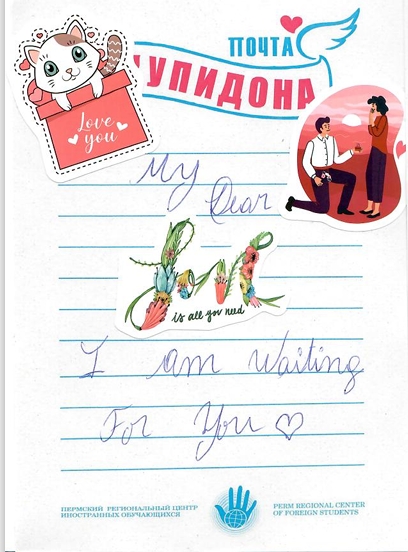 ПОЧТА
УПИДОНА
Love
you
My
Dear
love
is all you need
I am Waiting
For You
ПЕРМСКИЙ РЕГИОНАЛЬНЫЙ ЦЕНТР
ИНОСТРАННЫХ ОБУЧАЮЩИХСЯ
PERM REGIONAL CENTER
OF FOREIGN STUDENTS